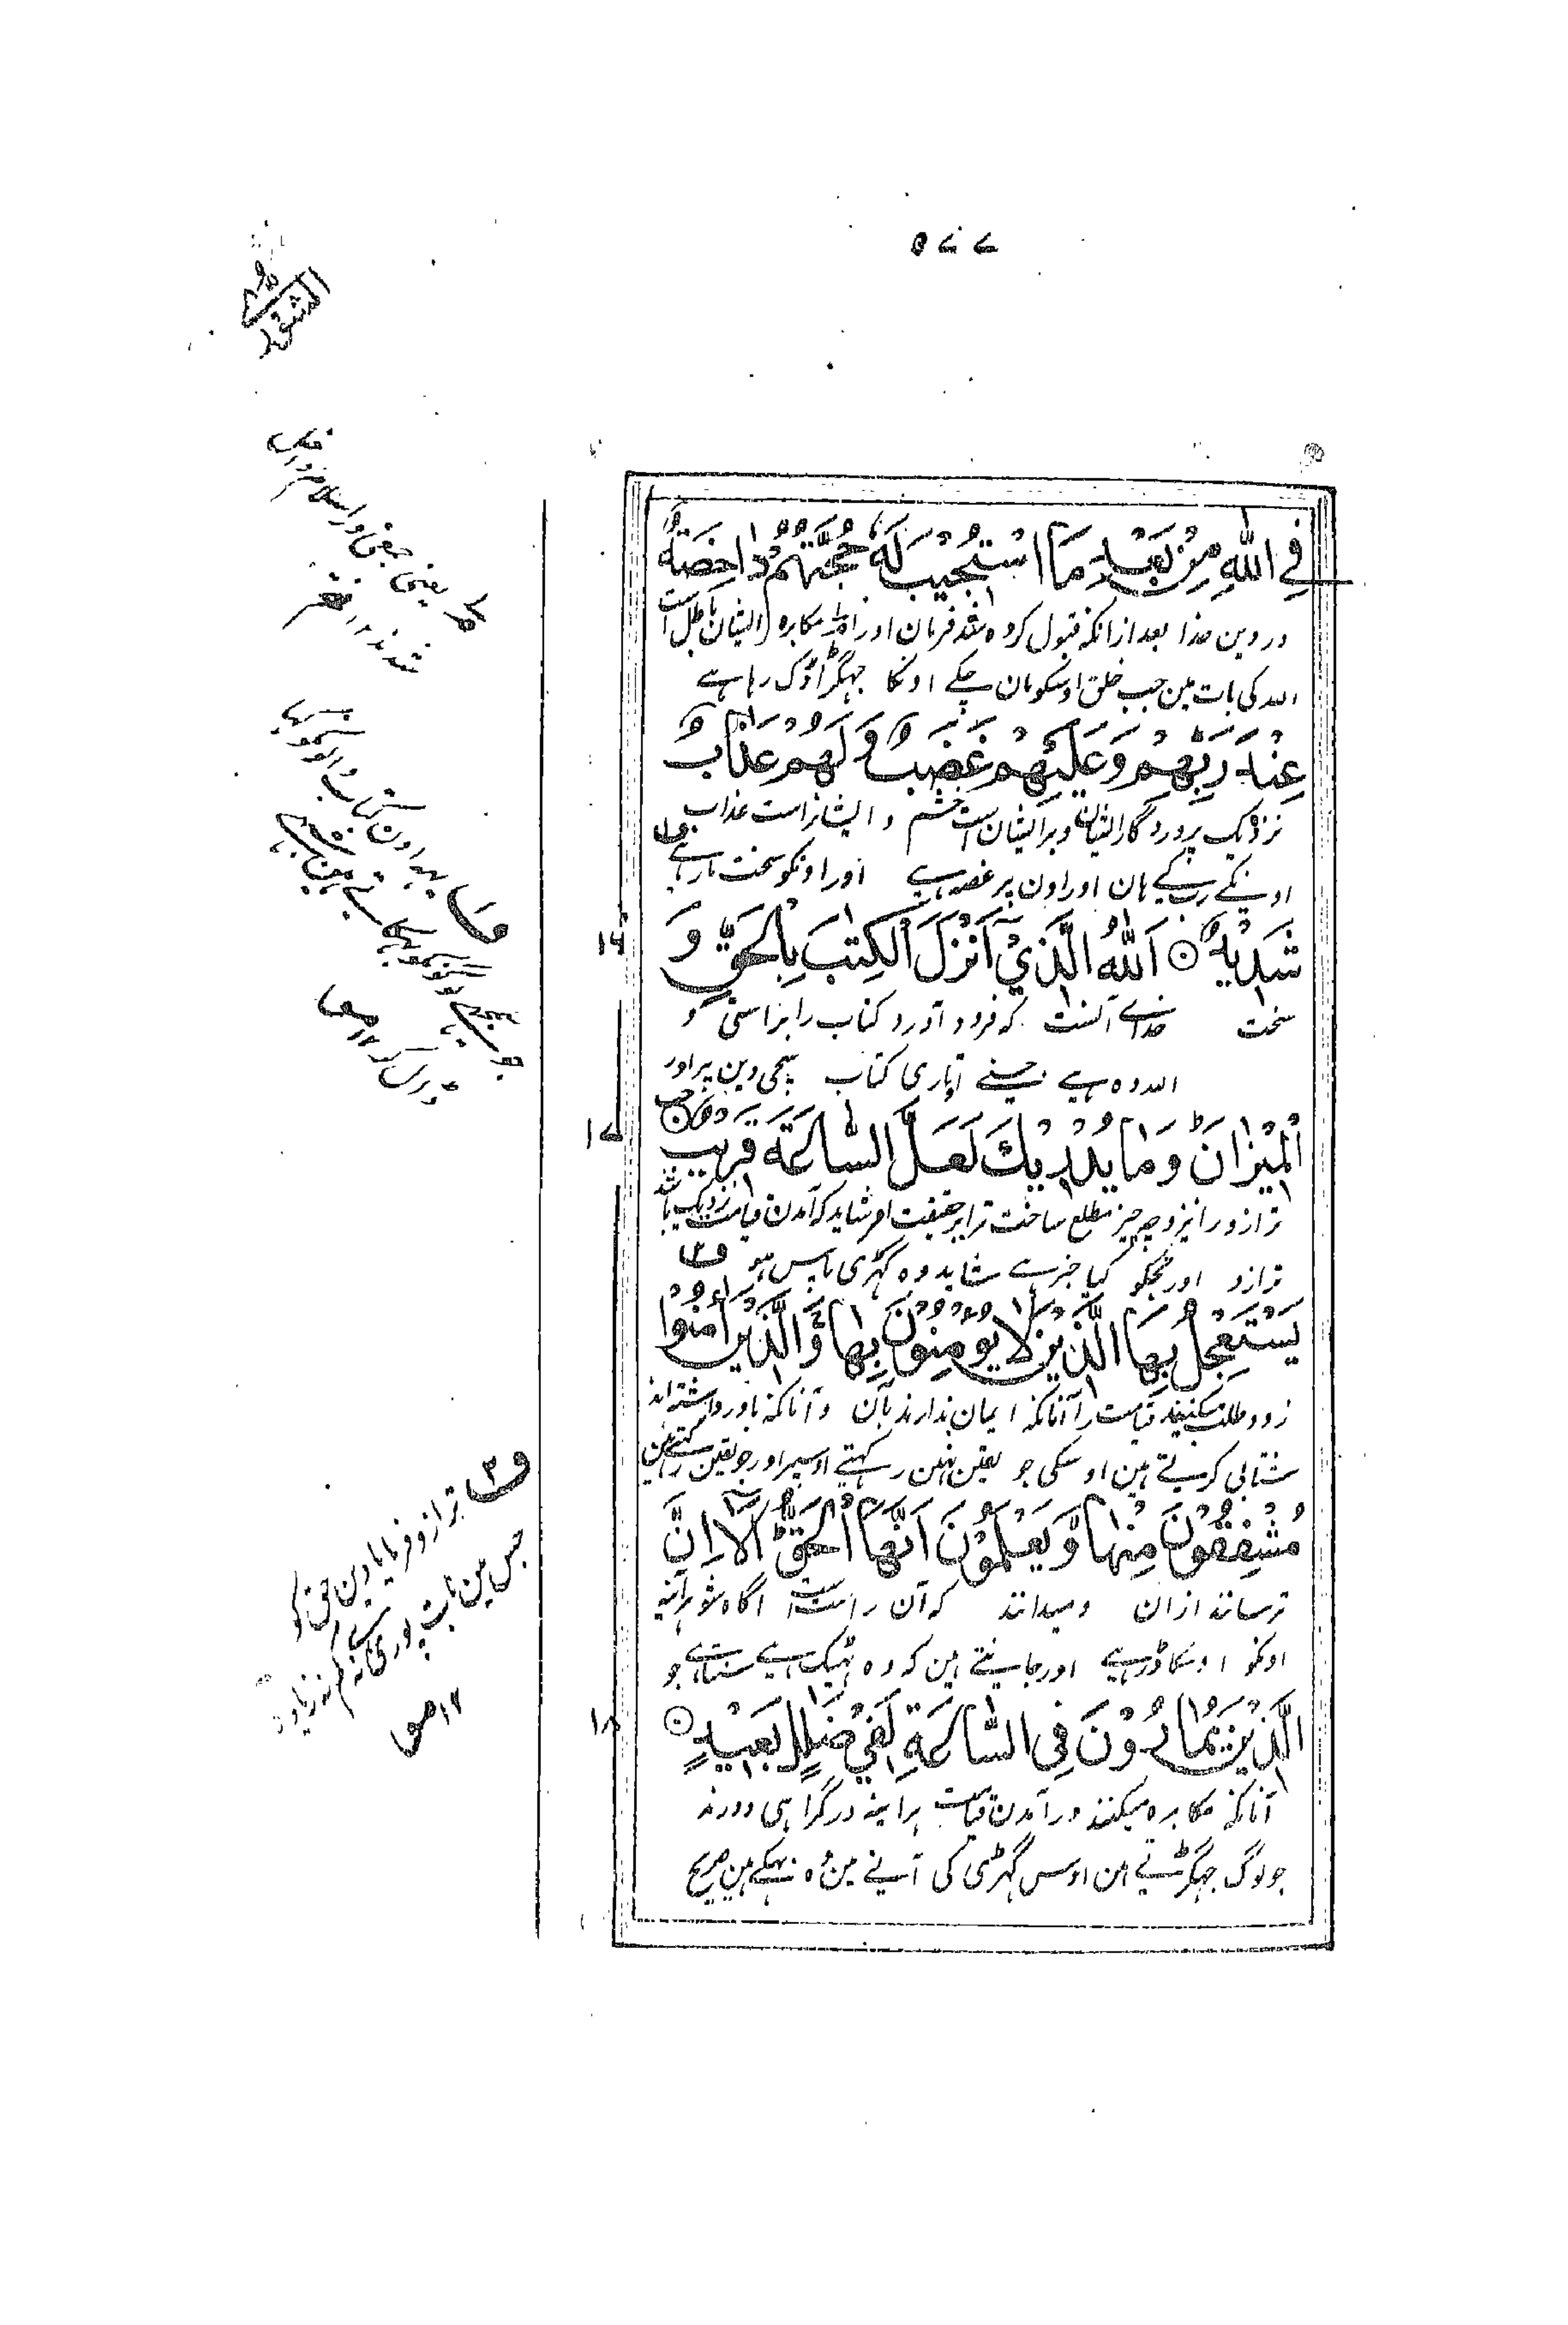 ۵۷۷
الشوری
فِي اللّٰهِ مِنْ بَعْدِ مَا اسْتُجِيْبَ لَهٗ حُجَّتُهُمْ دَاحِضَةٌ
در دین خدا بعد ازانکه قبول کرده شد فرمان او را مکابره ایشان باطل است
الله کی بات مین جب خلق اوسکو مان چکے اونکا جہگڑا ڈگ رہا ہے
عِنْدَ رَبِّهِمْ وَعَلَيْهِمْ غَضَبٌ وَّلَهُمْ عَذَابٌ
نزدیک پروردگار ایشان و بر ایشان است خشم و ایشانراست عذاب
اونکے رب کے ہان اور اون پر غصہ ہے اور اونکو سخت مار ہے
شَدِيْدٌ ۝ اَللّٰهُ الَّذِيْٓ اَنْزَلَ الْكِتٰبَ بِالْحَقِّ وَ
۱۶
سخت خداے آنست که فرود آورد کتاب را براستی و
الله وہ ہے جسنے اتاری کتاب سچی دین پر اور
الْمِيْزَانَ ؕ وَمَا يُدْرِيْكَ لَعَلَّ السَّاعَةَ قَرِيْبٌ ۝
۱۷
ترازو را نیز و چه چیز مطلع ساخت ترا بر حقیقت امر شاید که آمدن قیامت نزدیک باشد
ترازو اور تجکو کیا خبر ہے شاید وہ گہڑی پاس ہو ف۳
يَسْتَعْجِلُ بِهَا الَّذِيْنَ لَا يُؤْمِنُوْنَ بِهَا ۚ وَالَّذِيْنَ اٰمَنُوْا
زود طلب میکنند قیامت را آنانکه ایمان ندارند بآن و آنانکه باور داشته اند
شتابی کرتے ہین اوسکی جو یقین نہین رکہتے اوسپر اور جو یقین رکہتے ہین
مُشْفِقُوْنَ مِنْهَا ۙ وَيَعْلَمُوْنَ اَنَّهَا الْحَقُّ ؕ اَلَآ اِنَّ
ترسانند ازان و میدانند که آن راست است اگاه شو هرآئینه
اونکو اوسکا ڈر ہے اور جانتے ہین که وہ ٹہیک ہے سنتا ہے جو
الَّذِيْنَ يُمَارُوْنَ فِي السَّاعَةِ لَفِيْ ضَلٰلٍۭ بَعِيْدٍ ۝
۱۸
آنانکه مکابره میکنند در آمدن قیامت هرآینه در گمراہی دورند
جو لوگ جہگڑتے ہین اوس گہڑی کی آنے مین وہ بہکے ہین صریح
یعنی
شدند ۱۲
ف۳ ترازو فرمایا دین حق کو
جس مین بات پوری ہے نہ کم نہ زیادہ
۱۲